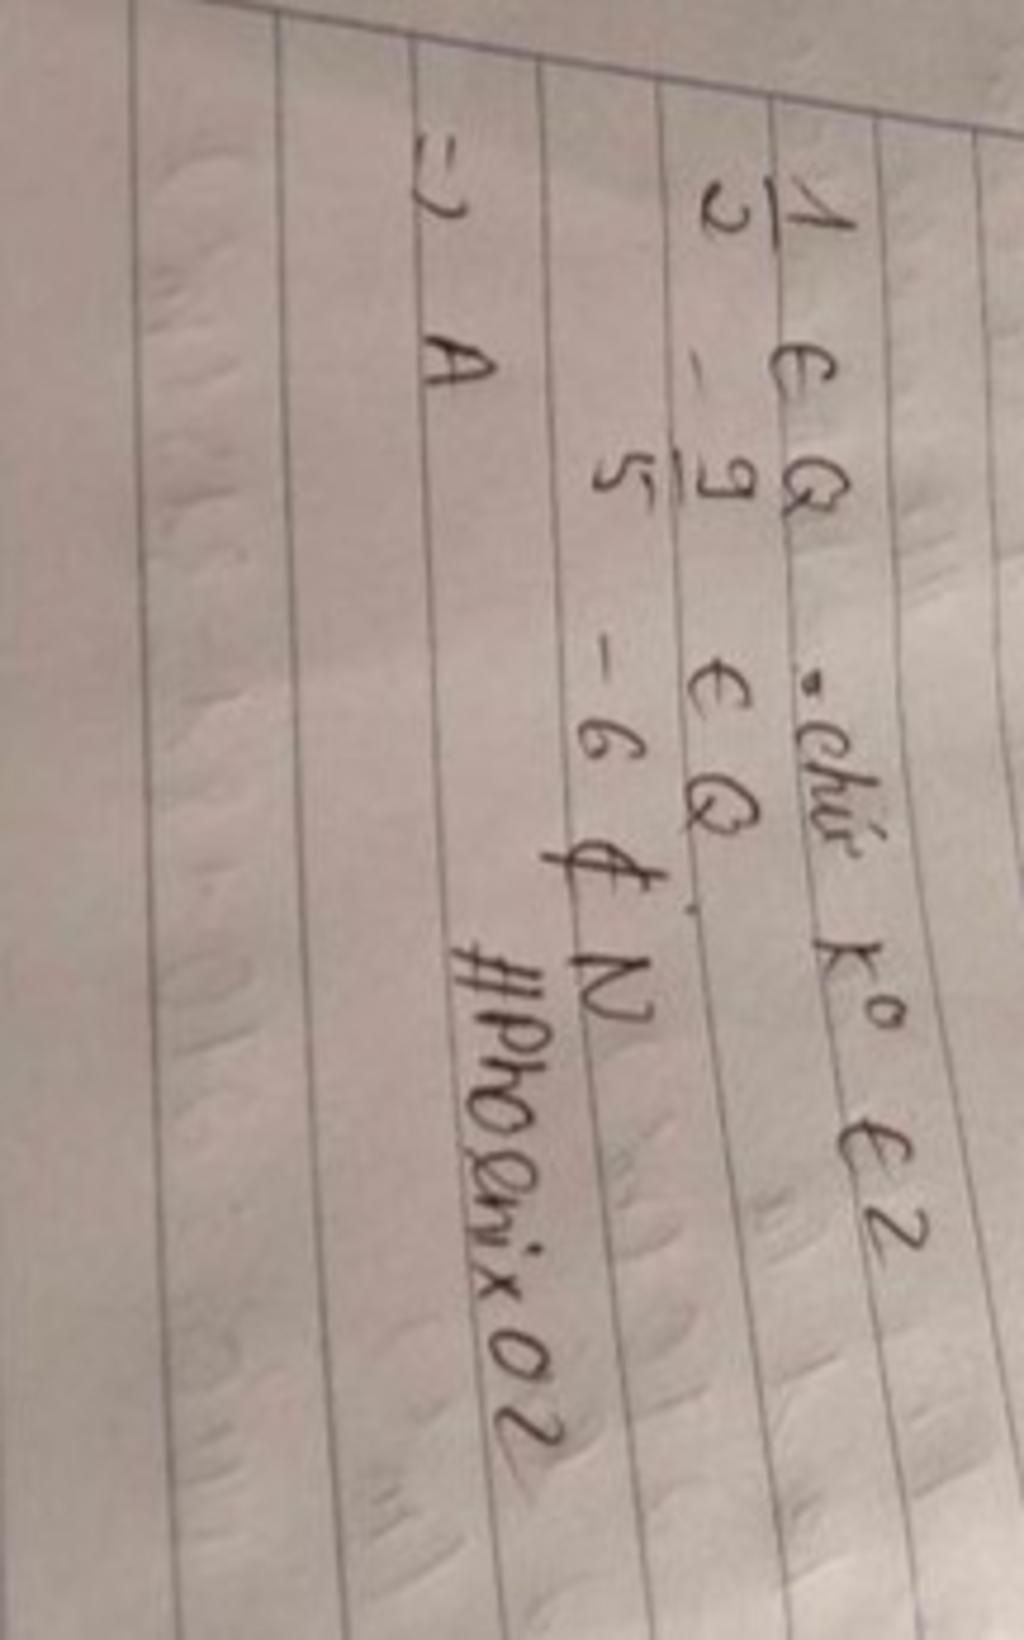 1/2 ∈ Q . chứ k° ∈ Z
- 9/5 ∈ Q .
- 6 ∉ N
=> A
#Phoenix02